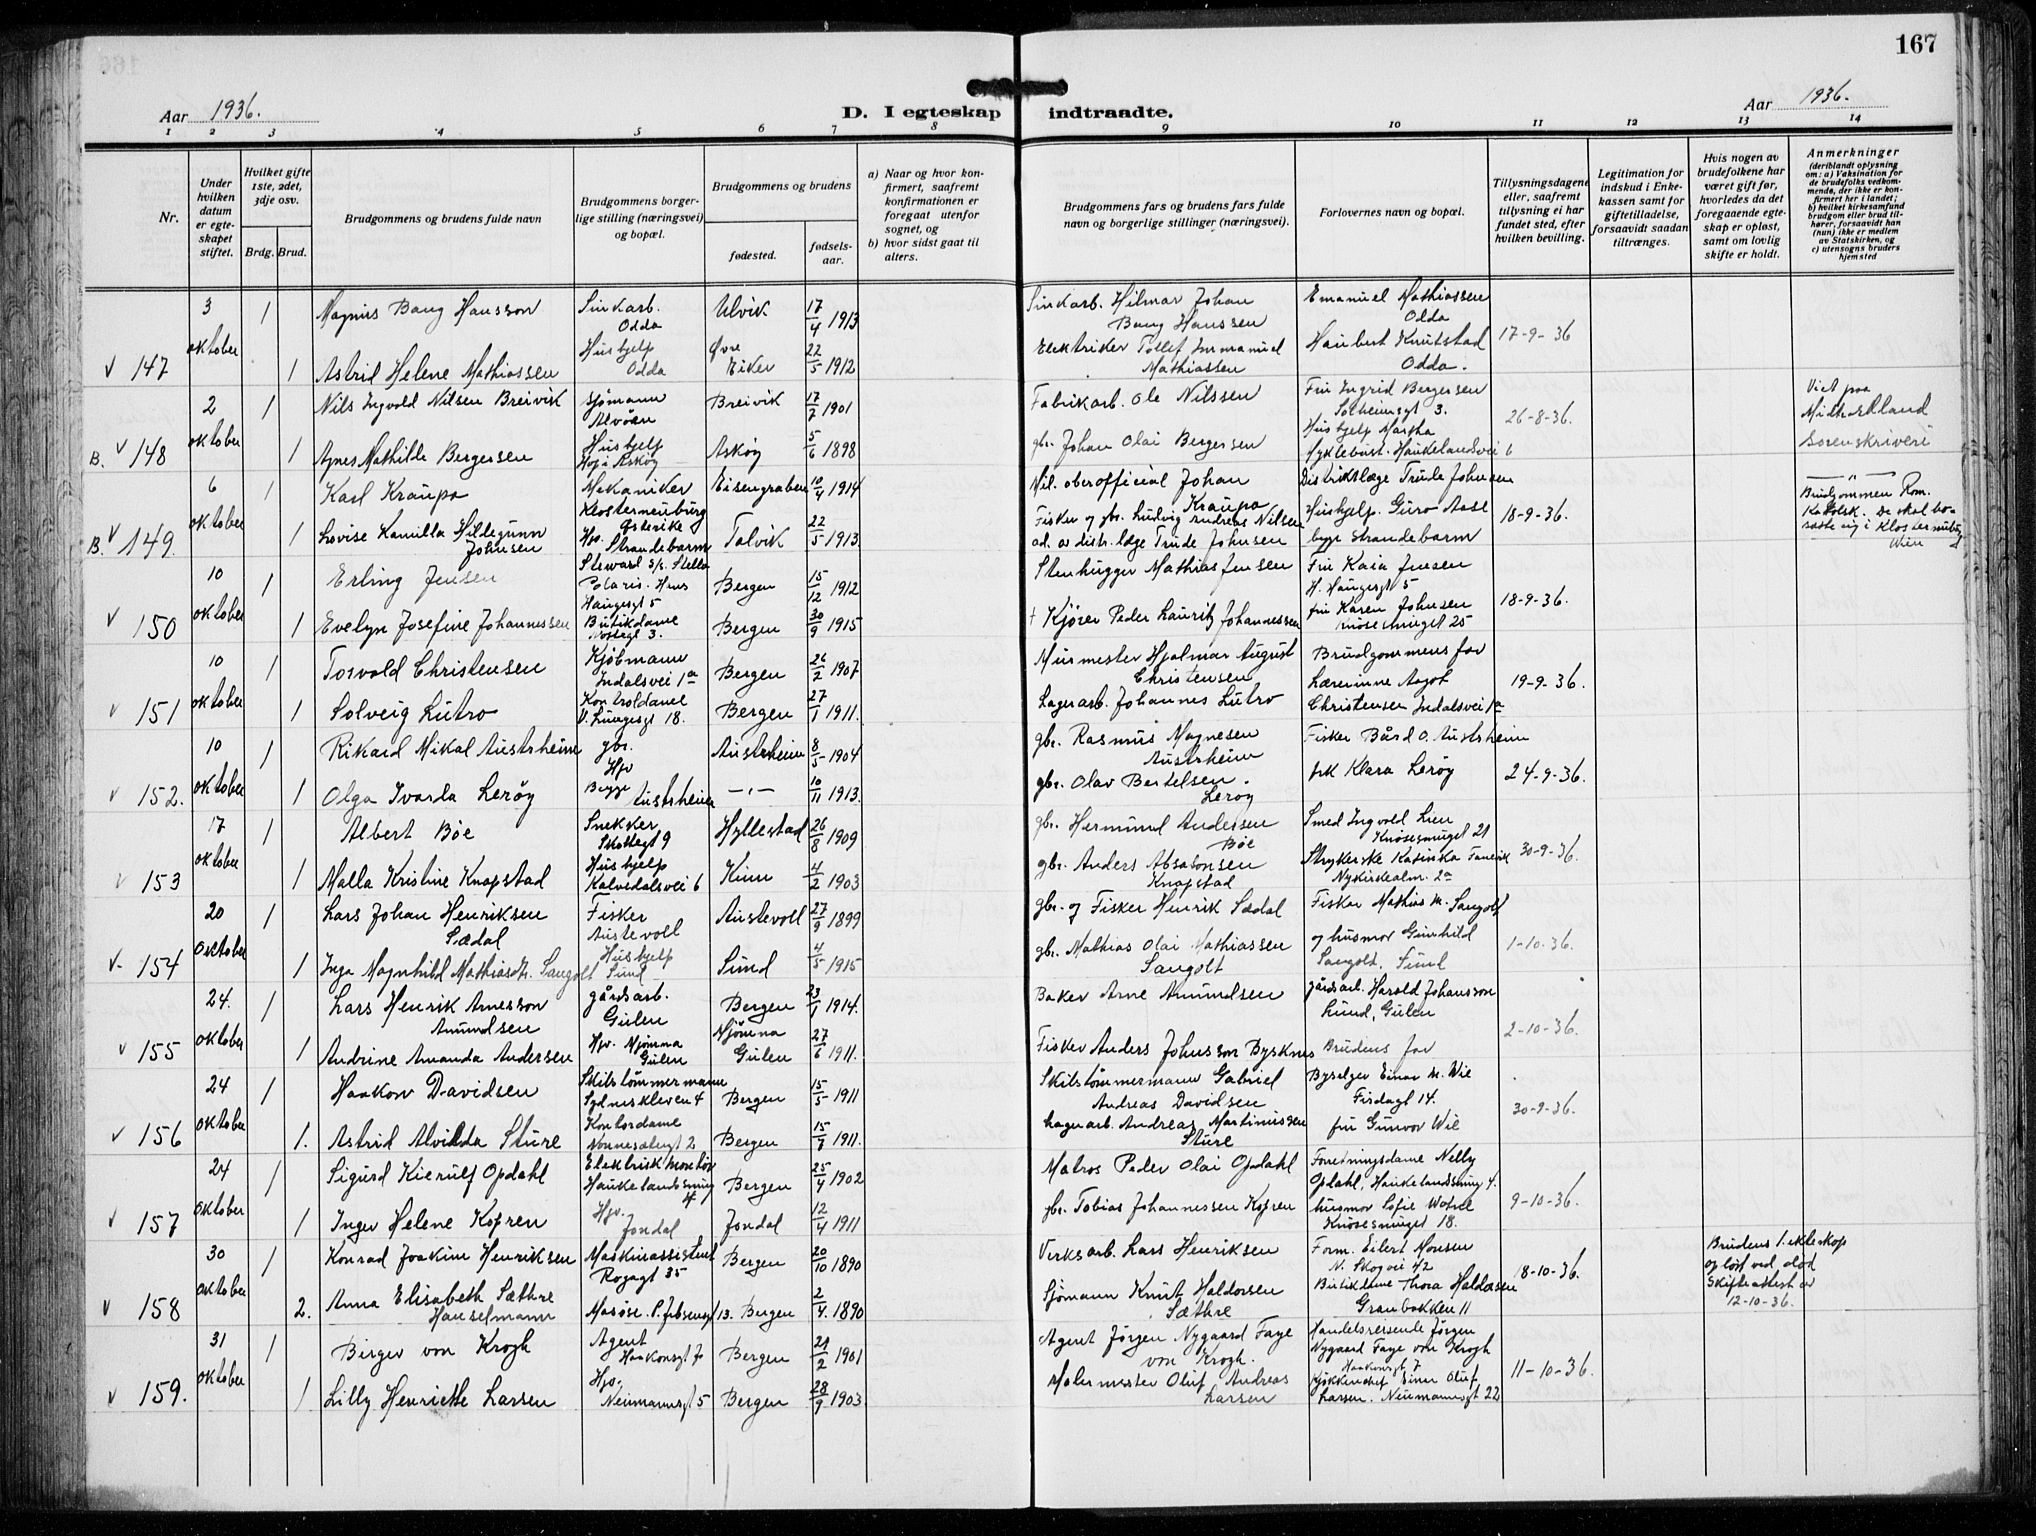 167
Aar 1936.
D. I egteskap indtraadte.
Aar 1936.
1 2 3 4 5 6 7 8 9 10 11 12 13 14
Nr.
Under hvilken datum er egteskapet stiftet.
Hvilket gifte 1ste, 2det, 3dje osv.
Brdg. Brud.
Brudgommens og brudens fulde navn
Brudgommens borgerlige stilling (næringsvei) og bopæl.
Brudgommens og brudens
fødested.
fødselsaar.
a) Naar og hvor konfirmert, saafremt konfirmationen er foregaat utenfor sognet, og
b) hvor sidst gaat til alters.
Brudgommens fars og brudens fars fulde navn og borgerlige stillinger (næringsvei).
Forlovernes navn og bopæl.
Tillysningsdagene eller, saafremt tillysning ei har fundet sted, efter hvilken bevilling.
Legitimation for indskud i Enkekassen samt for giftetilladelse, forsaavidt saadan tiltrænges.
Hvis nogen av brudefolkene har været gift før, hvorledes da det foregaaende egteskap er opløst, samt om lovlig skifte er holdt.
Anmerkninger
(deriblandt oplysning om: a) Vaksination for de brudefolks vedkommende, der ikke er konfirmert her i landet;
b) hvilket kirkesamfund brudgom eller brud tilhører, forsaavidt han (hun) ikke er medlem av Statskirken, og
c) utensogns bruders hjemsted
3 oktober 1 Magnus Bang Hansson Sinkarb. Odda Ulvik 17/4 1913 Sinkarb. Hilmar Johan Bang Hanssen Emanuel Mathiassen Odda 17-9-36
V 147 1 Astrid Helene Mathiassen Hushjelp Odda Øvre Eiker 22/5 1912 Elektriker Tollef Immanuel Mathiassen Haubert Knutstad Odda.
2 oktober 1 Nils Ingvold Nilsen Breivik Sjømann Alvøen Breivik 17/7 1901 Fabrikarb. Ole Nilssen Fru Ingrid Bergersen Solheimsgt 3. 26-8-36. Viet paa Midhordland Sorenskriveri
B. V 148 1 Agnes Mathilde Bergersen Hushjelp Hop i Askøy Askøy 5/6 1898 gbr. Johan Olai Bergersen Hushjelp Martha Myklebust. Haukelandsvei 6
6 oktober 1 Karl Kraupa Mekaniker Klosterneuburg Østerike Eisengraben 10/4 1914 Mil. oberofficial Johan Kraupa Distriktslæge Trude Johnsen 18-9-36. —"— Brudgommen Rom. Katolsk. De skal bosætte sig i Klosterneuburg Wien
B. V 149 1 Lovise Kamilla Hildegunn Johnsen Hjv. Strandebarm Talvik 22/5 1913 Fisker og gbr. Ludvig Andreas Nilsen ad. av distr. læge Trude Johnsen Hushjelp. Guro Aase begge Strandebarm
10 oktober 1 Erling Jensen Steward s/s. Stella Polaris. Hans Haugesgt 5 Bergen 15/12 1912 Stenhugger Mathias Jensen Fru Kaia Jensen H. Haugesgt 5 18-9-36.
V 150 1 Evelyn Josefine Johannessen Butikdame Nostegt 3. Bergen 30/9 1915 † Kjører Peder Lauritz Johannessen fru Karen Johnsen Knøsesmuget 25
10 oktober 1 Torvald Christensen Kjøbmann Indalsvei 1a Bergen 26/2 1907 Murmester Hjalmar August Christensen Brudgommens far 19-9-36.
V 151 1 Solveig Lutro Kontoldame V. Lungesgt 18. Bergen 27/1 1911. Lagerarb. Johannes Lutro Lærerinne Aagot Christensen Indalsvei 1a
10 oktober 1 Rikard Mikal Austrheim gbr. Austrheim 8/5 1904 gbr. Rasmus Magnesen Austrheim Fisker Bård O. Austrheim 24-9-36.
V 152. 1 Olga Ivarla Lerøy Hjv Begge Austrheim —"— 10/11 1913. gbr. Olav Bertelsen Lerøy frk Klara Lerøy
17 oktober 1 Albert Bøe Snekker Skottegt 9 Hyllestad 26/8 1909 gbr. Hermund Andersen Bøe Smed Ingvold Lien Knøsesmuget 21 30-9-36.
V 153 1 Malla Kristine Knapstad Hushjelp Kalvedalsvei 6 Kinn 4/2 1903 gbr. Anders Absalonsen Knapstad Strykerske Kasinka Nykirkealm. 2a
20 oktober 1 Lars Johan Henriksen Sædal Fisker Austevoll Austevoll 27/9 1899 gbr. og Fisker Henrik Sædal Fisker Mathias M. Sangolt 1-10-36.
V. 154 1 Inga Magnhild Mathiasdtr. Sangolt Hushjelp Sund Sund 4/5 1915 gbr. Mathias Olai Mathiassen Sangolt og husmor Gunhild Sangolt. Sund
24. oktober 1 Lars Henrik Arnesson Amundsen gårdsarb. Gulen Bergen 23/1 1914. Baker Arne Amundsen gårdsarb. Harald Johansson Lund, Gulen 2-10-36.
V 155 1 Andrine Amanda Andersen Hjv. Mjømna Gulen Mjømna Gulen 27/6 1911. Fisker Anders Johnsson Bysknes Brudens far
24 oktober 1 Haakon Davidsen Skibstømmermann Sydneskleven 4 Bergen 15/5 1911 Skibstømmermann Gabriel Andreas Davidsen Byselger Einar M. Wie Fisdagt 14. 30-9-36.
V 156 1. Astrid Alvilda Sture Kontordame Nonnesætergt 2 Bergen 15/7 1911. Lagerarb. Andreas Martinussen Sture fru Gunvor Wie
24 oktober 1 Sigurd Kierulf Opdahl Elektrisk Montør Haukelandssmug 4 Bergen 25/4 1902 Matros Peder Olai Opdahl Forretningsdame Nelly Opdahl, Haukelandssmug 4. 9-10-36.
V 157 1 Inger Helene Kopren Hjv. Jondal Jondal 12/4 1911 gbr. Tobias Johannessen Kopren husmor Sofie Knøsesmuget 18.
30 oktober 1 Konrad Joakim Henriksen Maskinassistent Rogagt 35 Bergen 20/10 1890 Verksarb. Lars Henriksen Form. Eilert Monsen N. Skogvei 42 18-10-36. Brudens 1. ekteskap opløst ved død Skifteattest av 12-10-36.
V 158 2. Anna Elisabeth Sæthre Hanselmann Masøse. P. Jebsensgt 13. Bergen 2/4 1890 Sjømann Knut Haldorsen Sæthre Butikdame Thora Haldorsen Granbakken 11
31 oktober 1 Birger von Krogh Agent Haakonsgt 7 Bergen 21/2 1901 Agent Jørgen Nygaard Faye von Krogh. Handelsreisende Jørgen Nygaard Faye von Krogh Haakonsgt 7 11-10-36.
V 159. 1 Lilly Henriette Larsen Hjv. Neumannsgt 5 Bergen 28/9 1903 Malermester Oluf Andreas Larsen Kjøkkenchef Einar Oluf Larsen. Neumannsgt 22